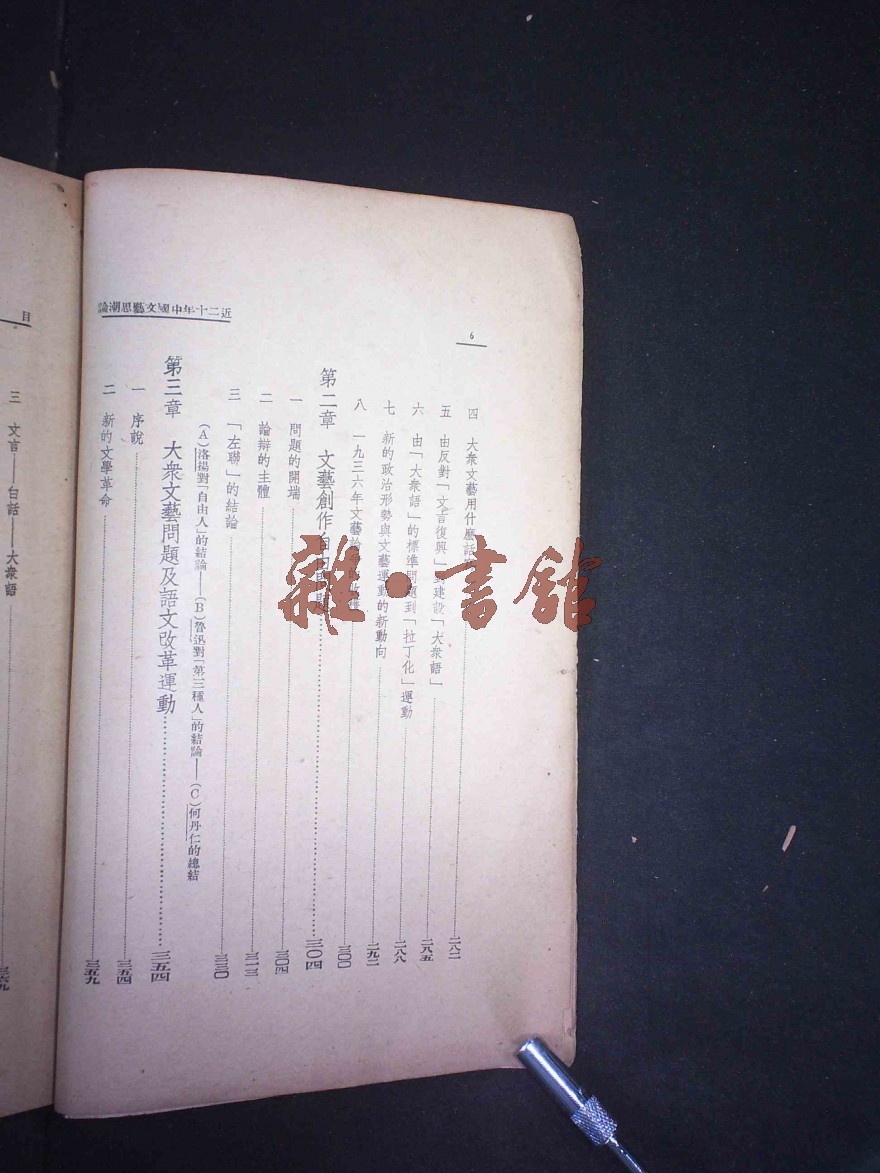 近二十年中國文藝思潮論
6
四 大衆文藝用什麼話 二八二
五 由反對「文言復興」到建設「大衆語」 二八五
六 由「大衆語」的標準問題到「拉丁化」運動 二八八
七 新的政治形勢與文藝運動的新動向 二九二
八 一九三六年文藝論 三〇〇
第二章 文藝創作自由問題 三〇四
一 問題的開端 三〇四
二 論辯的主體 三一三
三 「左聯」的結論 三三〇
(A)洛揚對「自由人」的結論——(B)魯迅對「第三種人」的結論——(C)何丹仁的總結
第三章 大衆文藝問題及語文改革運動 三五四
一 序說 三五四
二 新的文學革命 三五九
目
三 文言——白話——大衆語
雜·書館